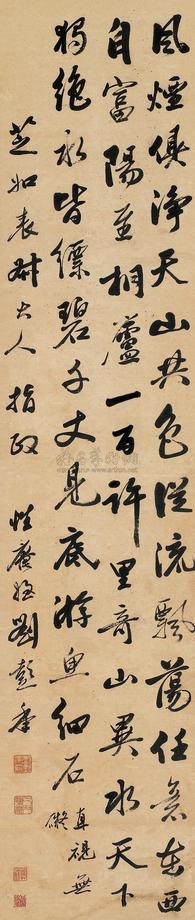 風煙俱淨天山共色從流飄蕩任意東西
自富陽至桐廬一百許里奇山異水天下
獨絶水皆縹碧千丈見底游魚細石
直視無
礙
芝如表尉大人指政
劉彭年